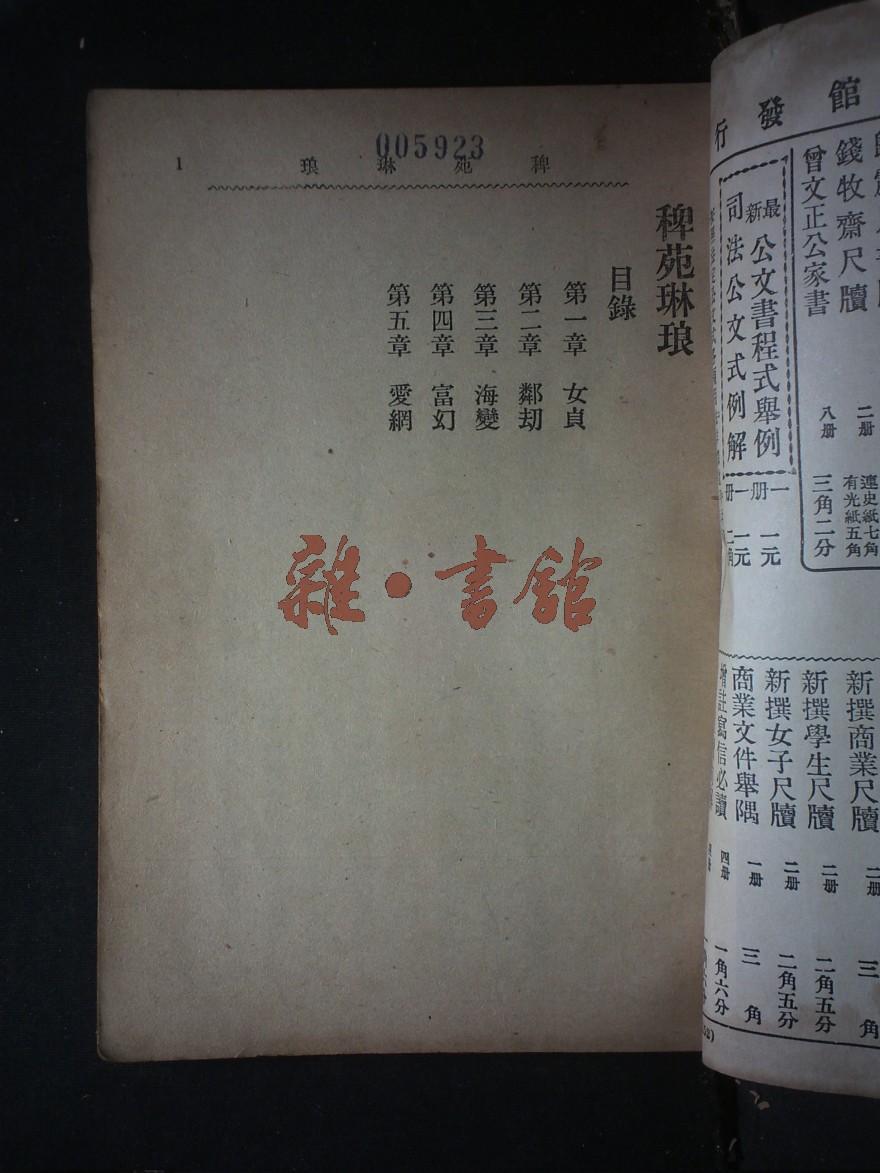 005923
稗苑琳琅
1
稗苑琳琅
目錄
第一章 女貞
第二章 鄰劫
第三章 海變
第四章 富幻
第五章 愛網
雜·書館
館發行
錢牧齋尺牘 二册 連史紙七角 有光紙五角
曾文正公家書 八册 三角二分
最新 公文書程式舉例 一册 一元
司法公文式例解 一册 一元二角
新撰商業尺牘 二册 三角
新撰學生尺牘 二册 二角五分
新撰女子尺牘 二册 二角五分
商業文件舉隅 一册 三角
增註寫信必讀 四册 一角六分